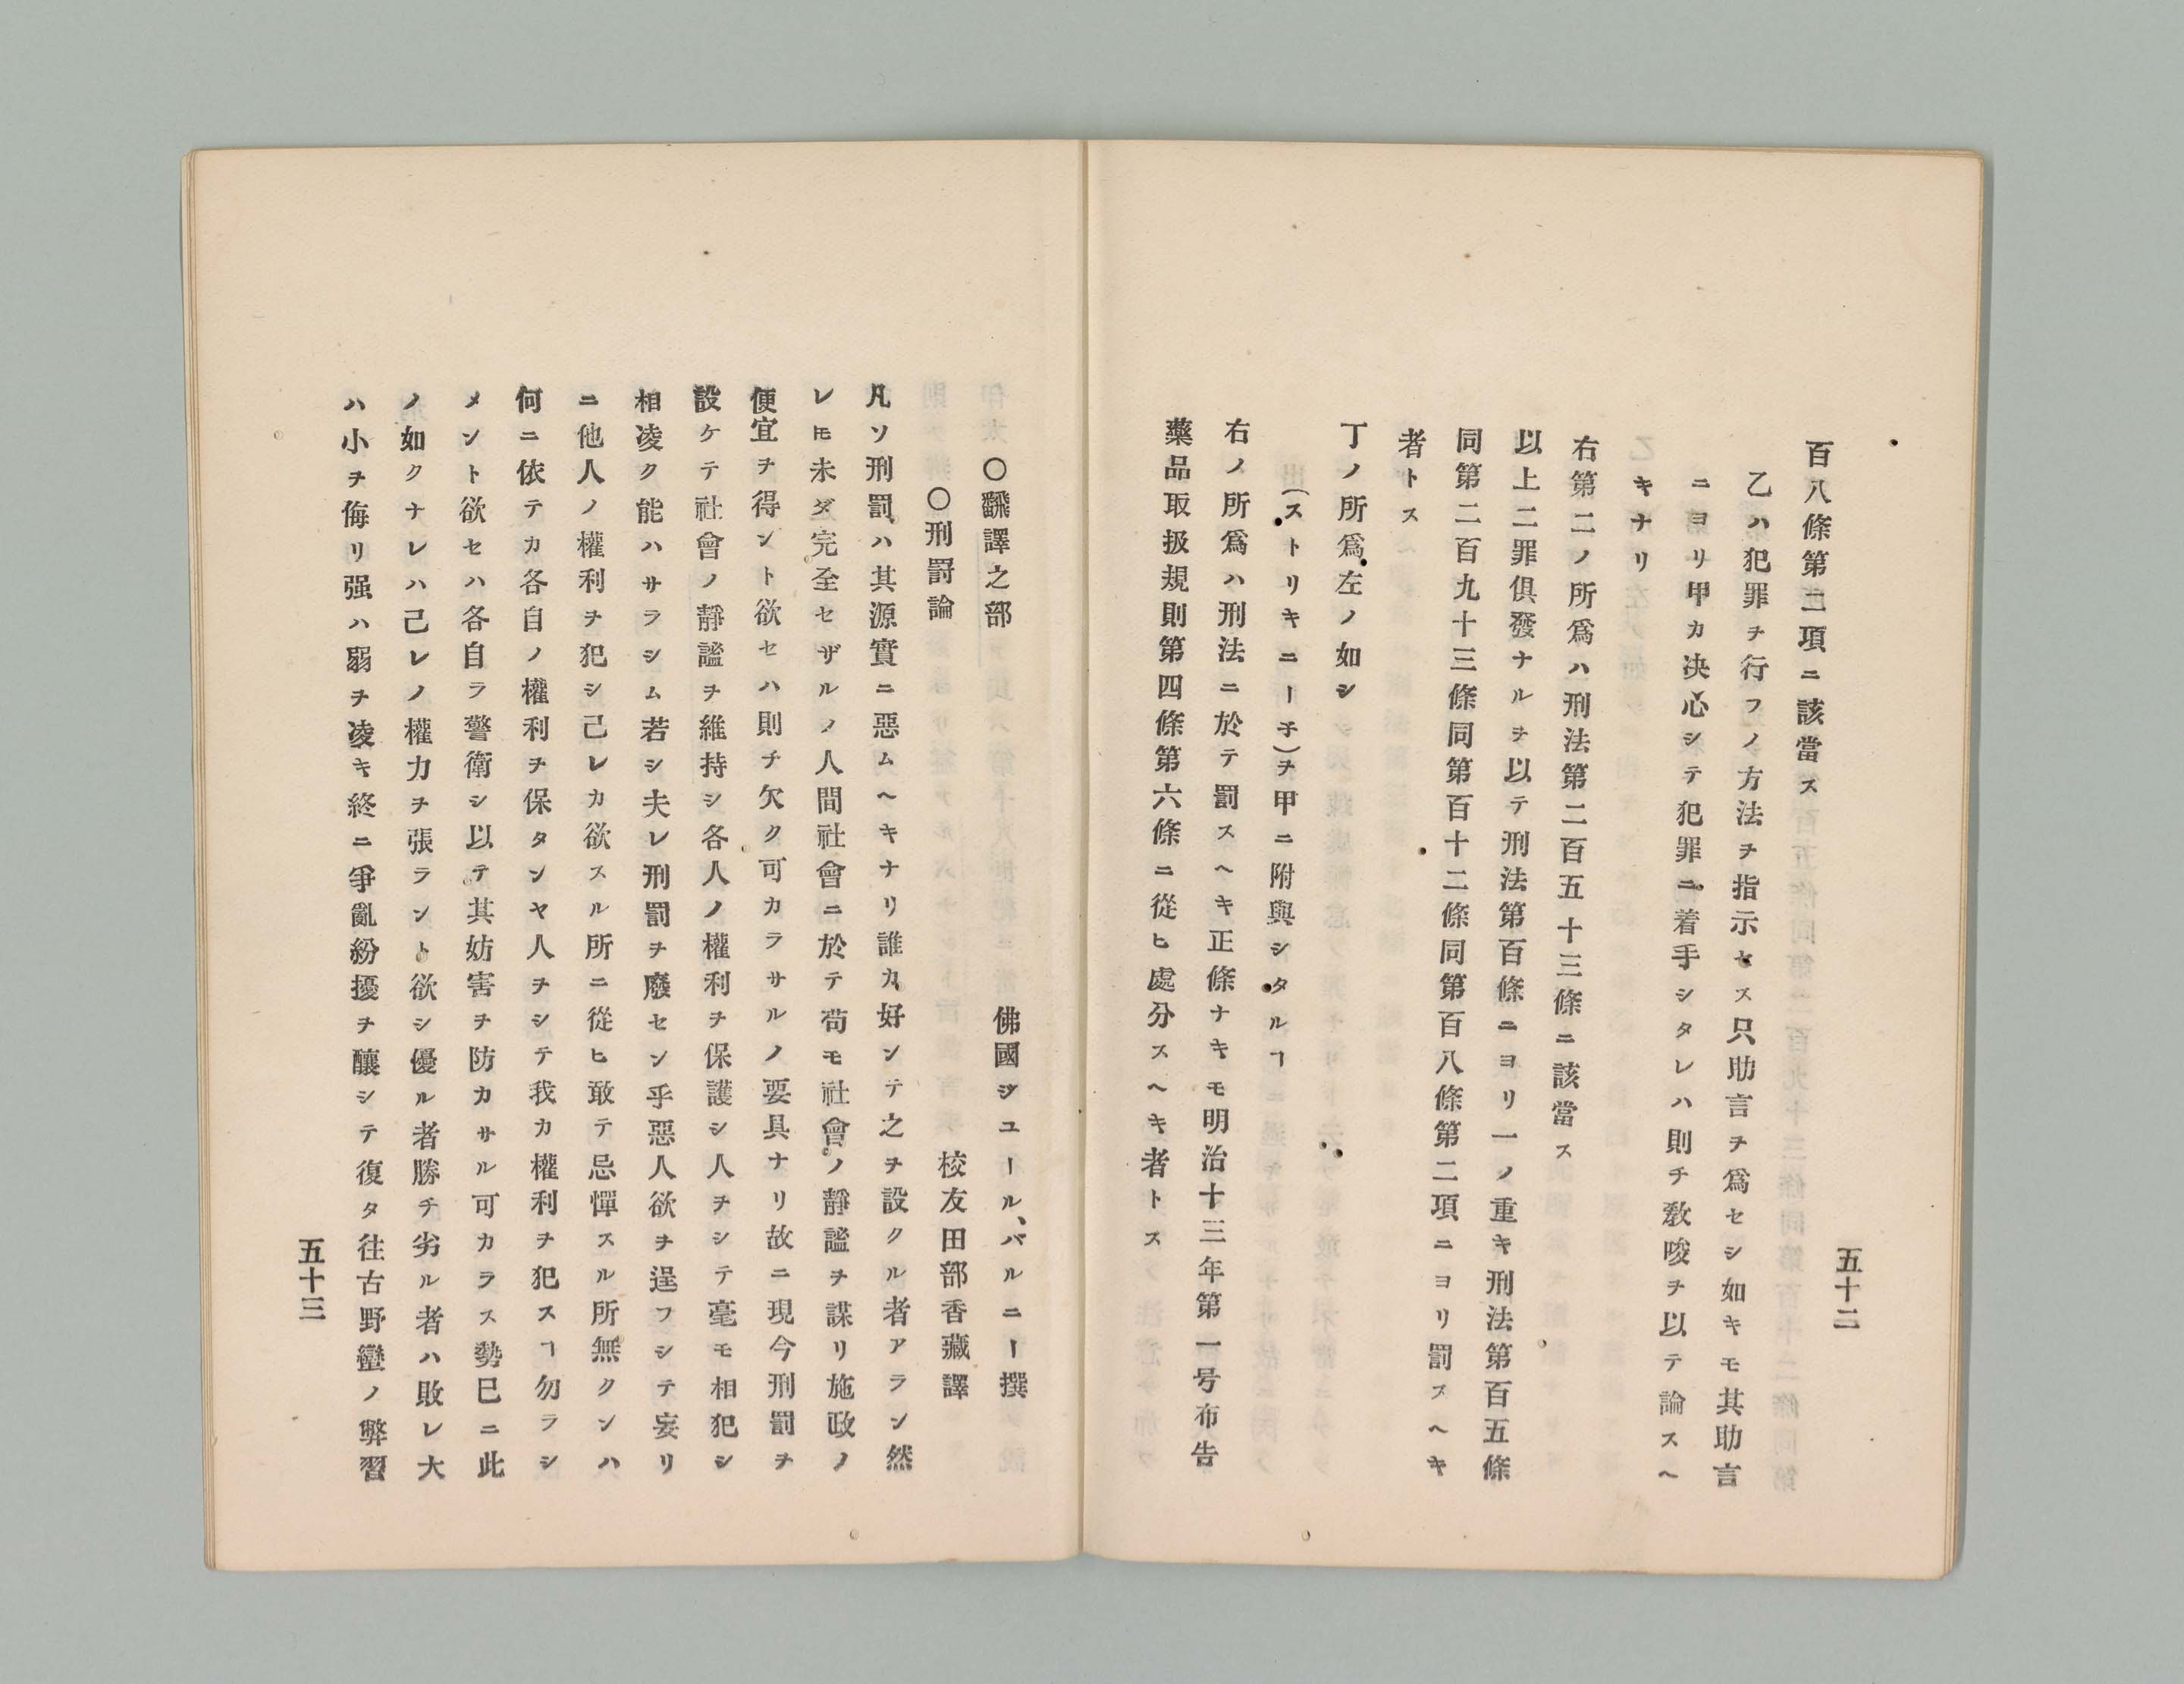 五十二
百八條第二項ニ該當ス
乙ハ犯罪ヲ行フノ方法ヲ指示セス只助言ヲ爲セシ如キモ其助言
ニヨリ甲カ决心シテ犯罪ニ着手シタレハ則チ敎唆ヲ以テ論スヘ
キナリ
右第二ノ所爲ハ刑法第二百五十三條ニ該當ス
以上二罪俱發ナルヲ以テ刑法第百條ニヨリ一ノ重キ刑法第百五條
同第二百九十三條同第百十二條同第百八條第二項ニヨリ罰スヘキ
者トス
丁ノ所爲左ノ如シ
(ストリキニーチ)ヲ甲ニ附與シタルヿ
右ノ所爲ハ刑法ニ於テ罰スヘキ正條ナキモ明治十三年第一号布告
藥品取扱規則第四條第六條ニ從ヒ處分スヘキ者トス
○飜譯之部
佛國ジユール、バルニー撰
○刑罰論
校友田部香藏譯
凡ソ刑罰ハ其源實ニ惡ムヘキナリ誰カ好ンテ之ヲ設クル者アラン然
レㆪ未ダ完全セザルノ人間社會ニ於テ苟モ社會ノ靜謐ヲ謀リ施政ノ
便宜ヲ得ント欲セハ則チ欠ク可カラサルノ要具ナリ故ニ現今刑罰ヲ
設ケテ社會ノ靜謐ヲ維持シ各人ノ權利ヲ保護シ人ヲシテ毫モ相犯シ
相凌ク能ハサラシム若シ夫レ刑罰ヲ廢セン乎惡人欲ヲ逞フシテ妄リ
ニ他人ノ權利ヲ犯シ己レカ欲スル所ニ從ヒ敢テ忌憚スル所無クンハ
何ニ依テカ各自ノ權利ヲ保タンヤ人ヲシテ我カ權利ヲ犯スヿ勿ラシ
メント欲セハ各自ラ警衛シ以テ其妨害ヲ防カサル可カラス勢已ニ此
ノ如クナレハ己レノ權力ヲ張ラント欲シ優ル者勝チ劣ル者ハ敗レ大
ハ小ヲ侮リ强ハ弱ヲ凌キ終ニ爭亂紛擾ヲ釀シテ復タ往古野蠻ノ弊習
五十三